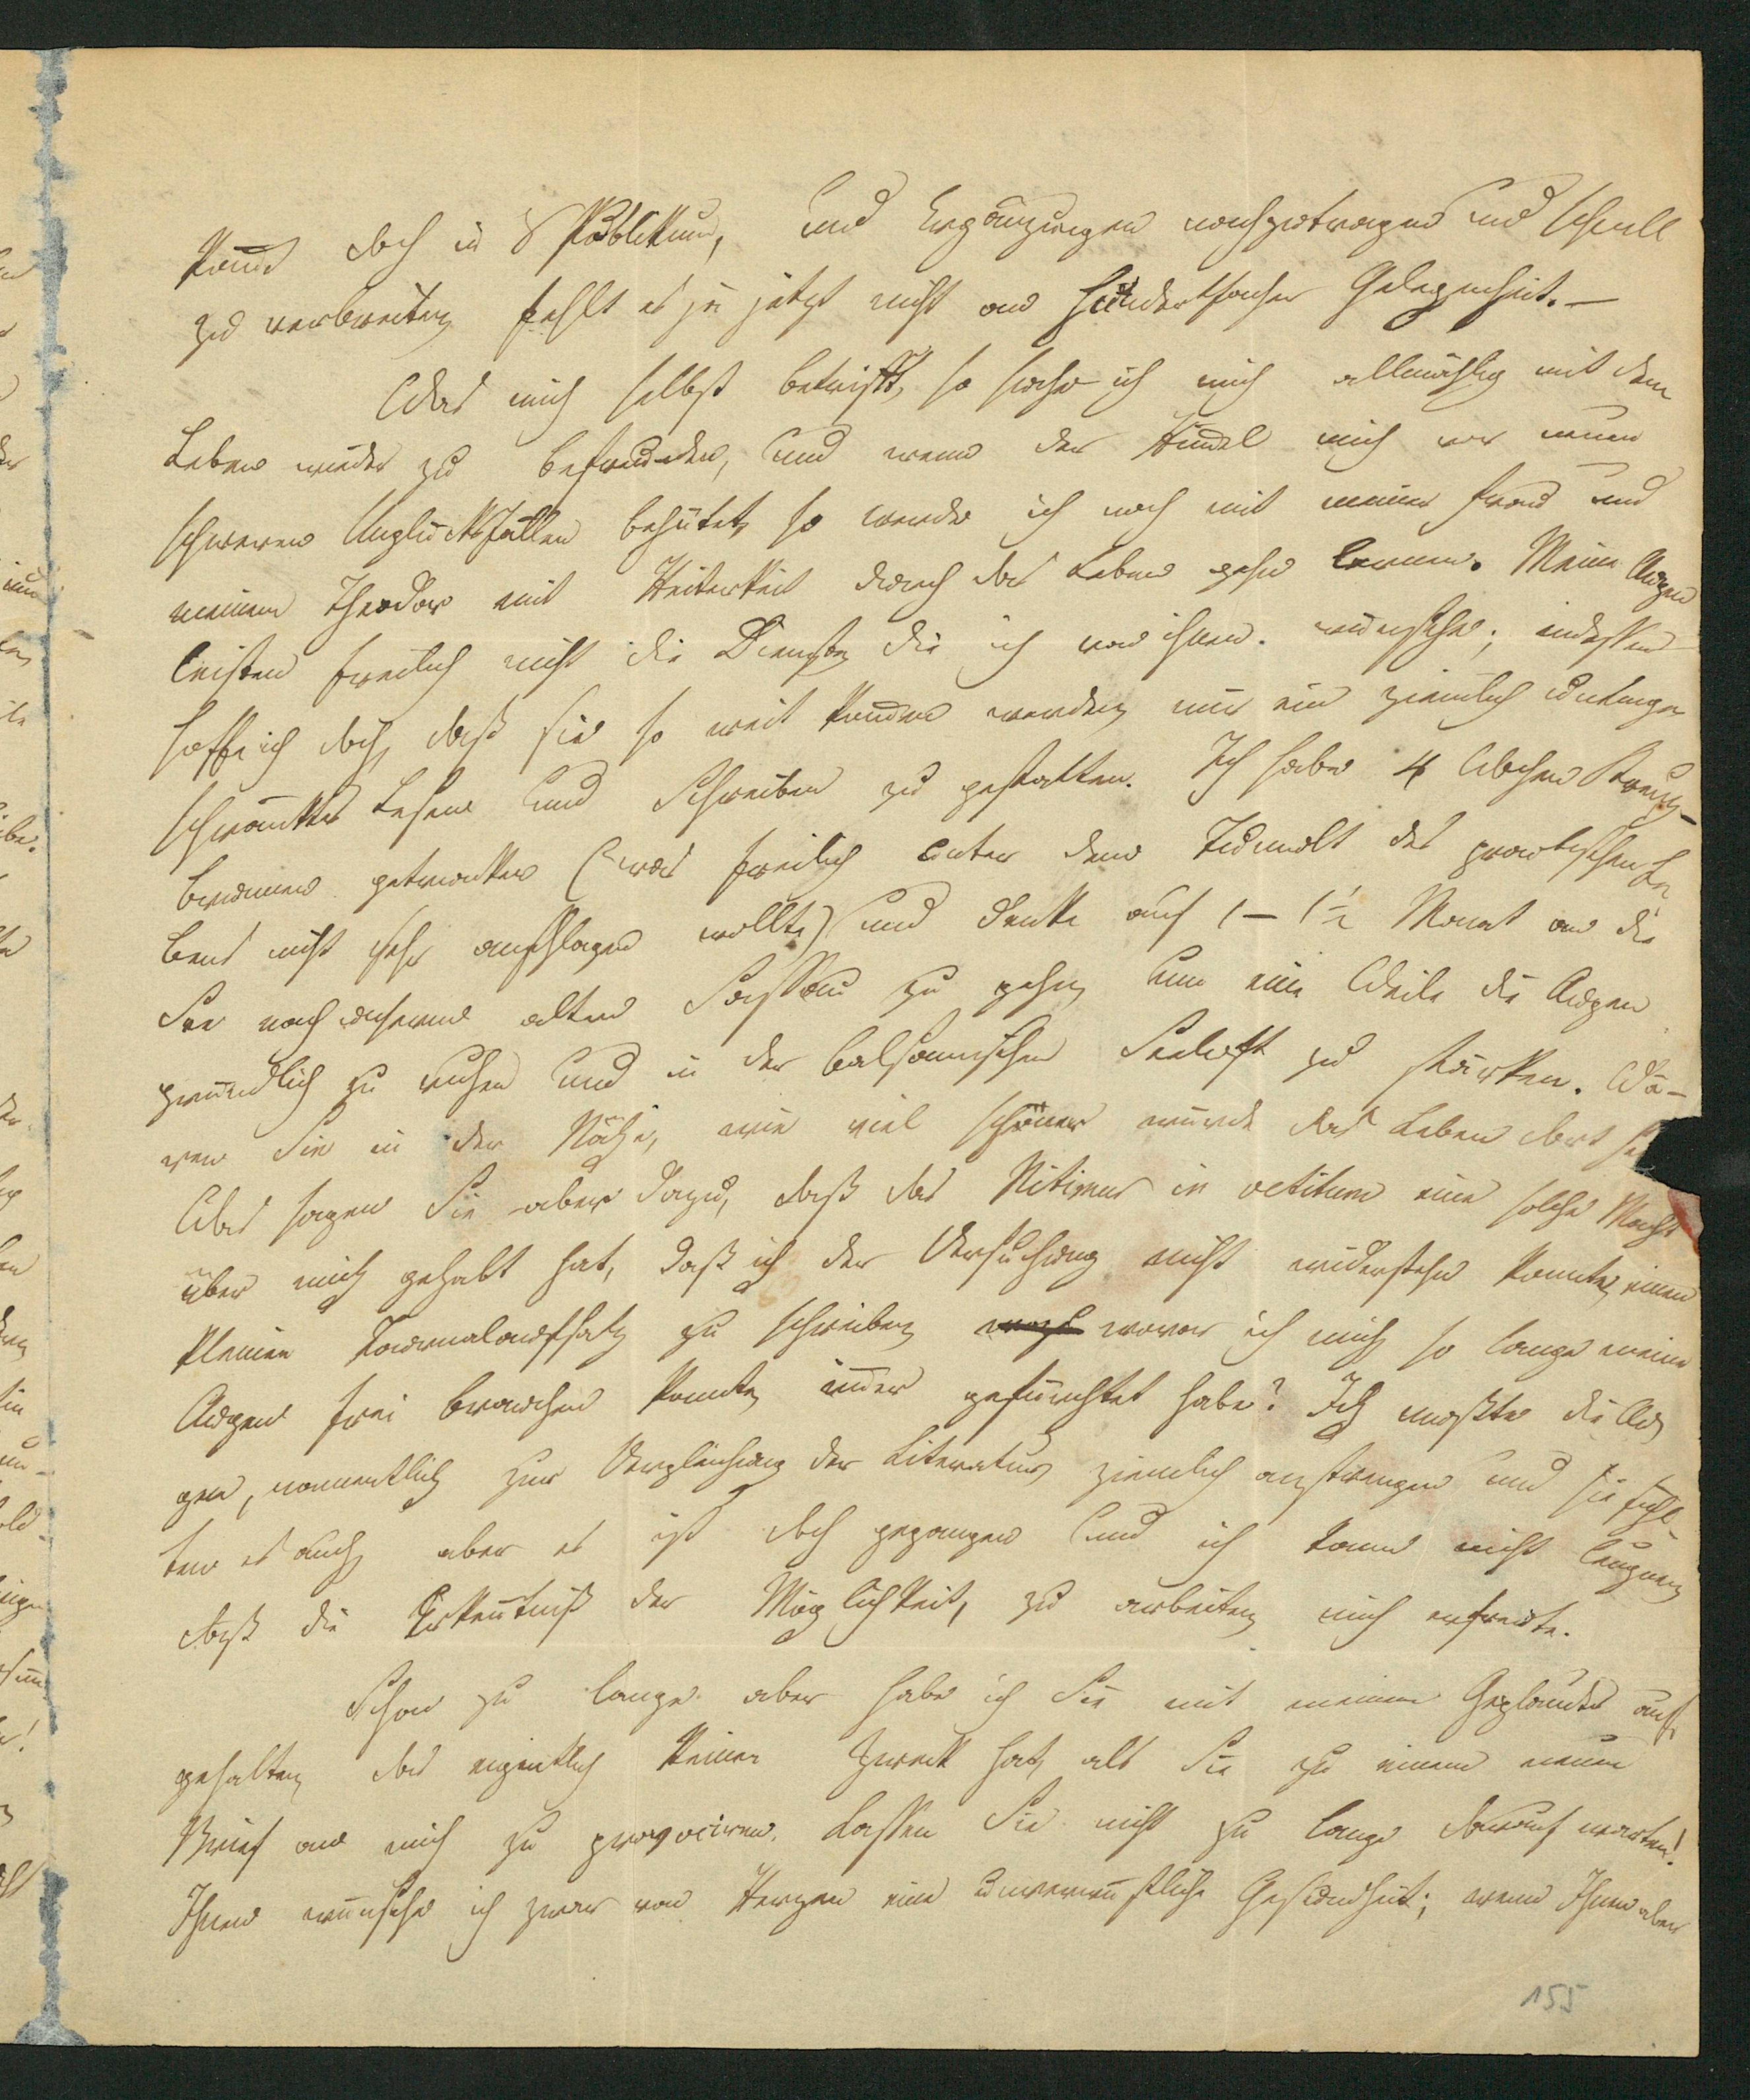 kommt doch in's Publikum, und Ergänzungen nachzutragen und schnell
zu verbreiten, fehlt es ja jetzt nicht an hundertfacher Gelegenheit. —
Was mich selbst betrifft, so suche ich mich allmählig mit dem
Leben wieder zu befreunden, und wenn der Himmel mich vor neuen
schweren Unglücksfällen behütet, so werde ich noch mit meiner Frau und
meinem Theodor mit Heiterkeit durch das Leben gehen lernen. Meine Augen
leisten freilich nicht die Dienste, die ich von ihnen wünsche; indessen
hoffe ich doch, daß sie so weit kommen werden, mir ein ziemlich uneinge-
schränktes Lesen und Schreiben zu gestatten. Ich habe 4 Wochen Kreuz-
brunnen getrunken (was freilich unter dem Tumult des practischen Le-
bens nicht sehr anschlagen wollte) und denke auf 1 – 1½ Monat an die
See nach unserem alten Sassau zu gehen, um eine Weile die Augen
gründlich zu ruhen und in der balsamischen Seeluft zu stärken. Wä-
ren Sie in der Nähe, wie viel schöner würde das Leben dort
Was sagen Sie aber dazu, daß das Nitimur in vetitum eine solche Macht
über mich gehabt hat, daß ich der Versuchung nicht widerstehen konnte, einen
kleinen Journalaufsatz zu schreiben, wovor ich mich so lange meine
Augen frei brauchen konnte, immer gefürchtet habe? Ich mußte die Au-
gen, namentlich zur Vergleichung der Literatur, ziemlich anstrengen und sie fühl-
ten es auch, aber es ist doch gegangen und ich kann nicht leugnen,
daß die Erkenntniß der Möglichkeit, zu arbeiten, mich erfreute.
Schon zu lange aber habe ich Sie mit meinem Geplauder auf-
gehalten, das eigentlich keinen Zweck hat, als Sie zu einem neuen
Brief an mich zu provociren. Lassen Sie nicht zu lange darauf warten!
Ihnen wünsche ich zwar von Herzen eine unverwüstliche Gesundheit; wenn Ihnen aber
155